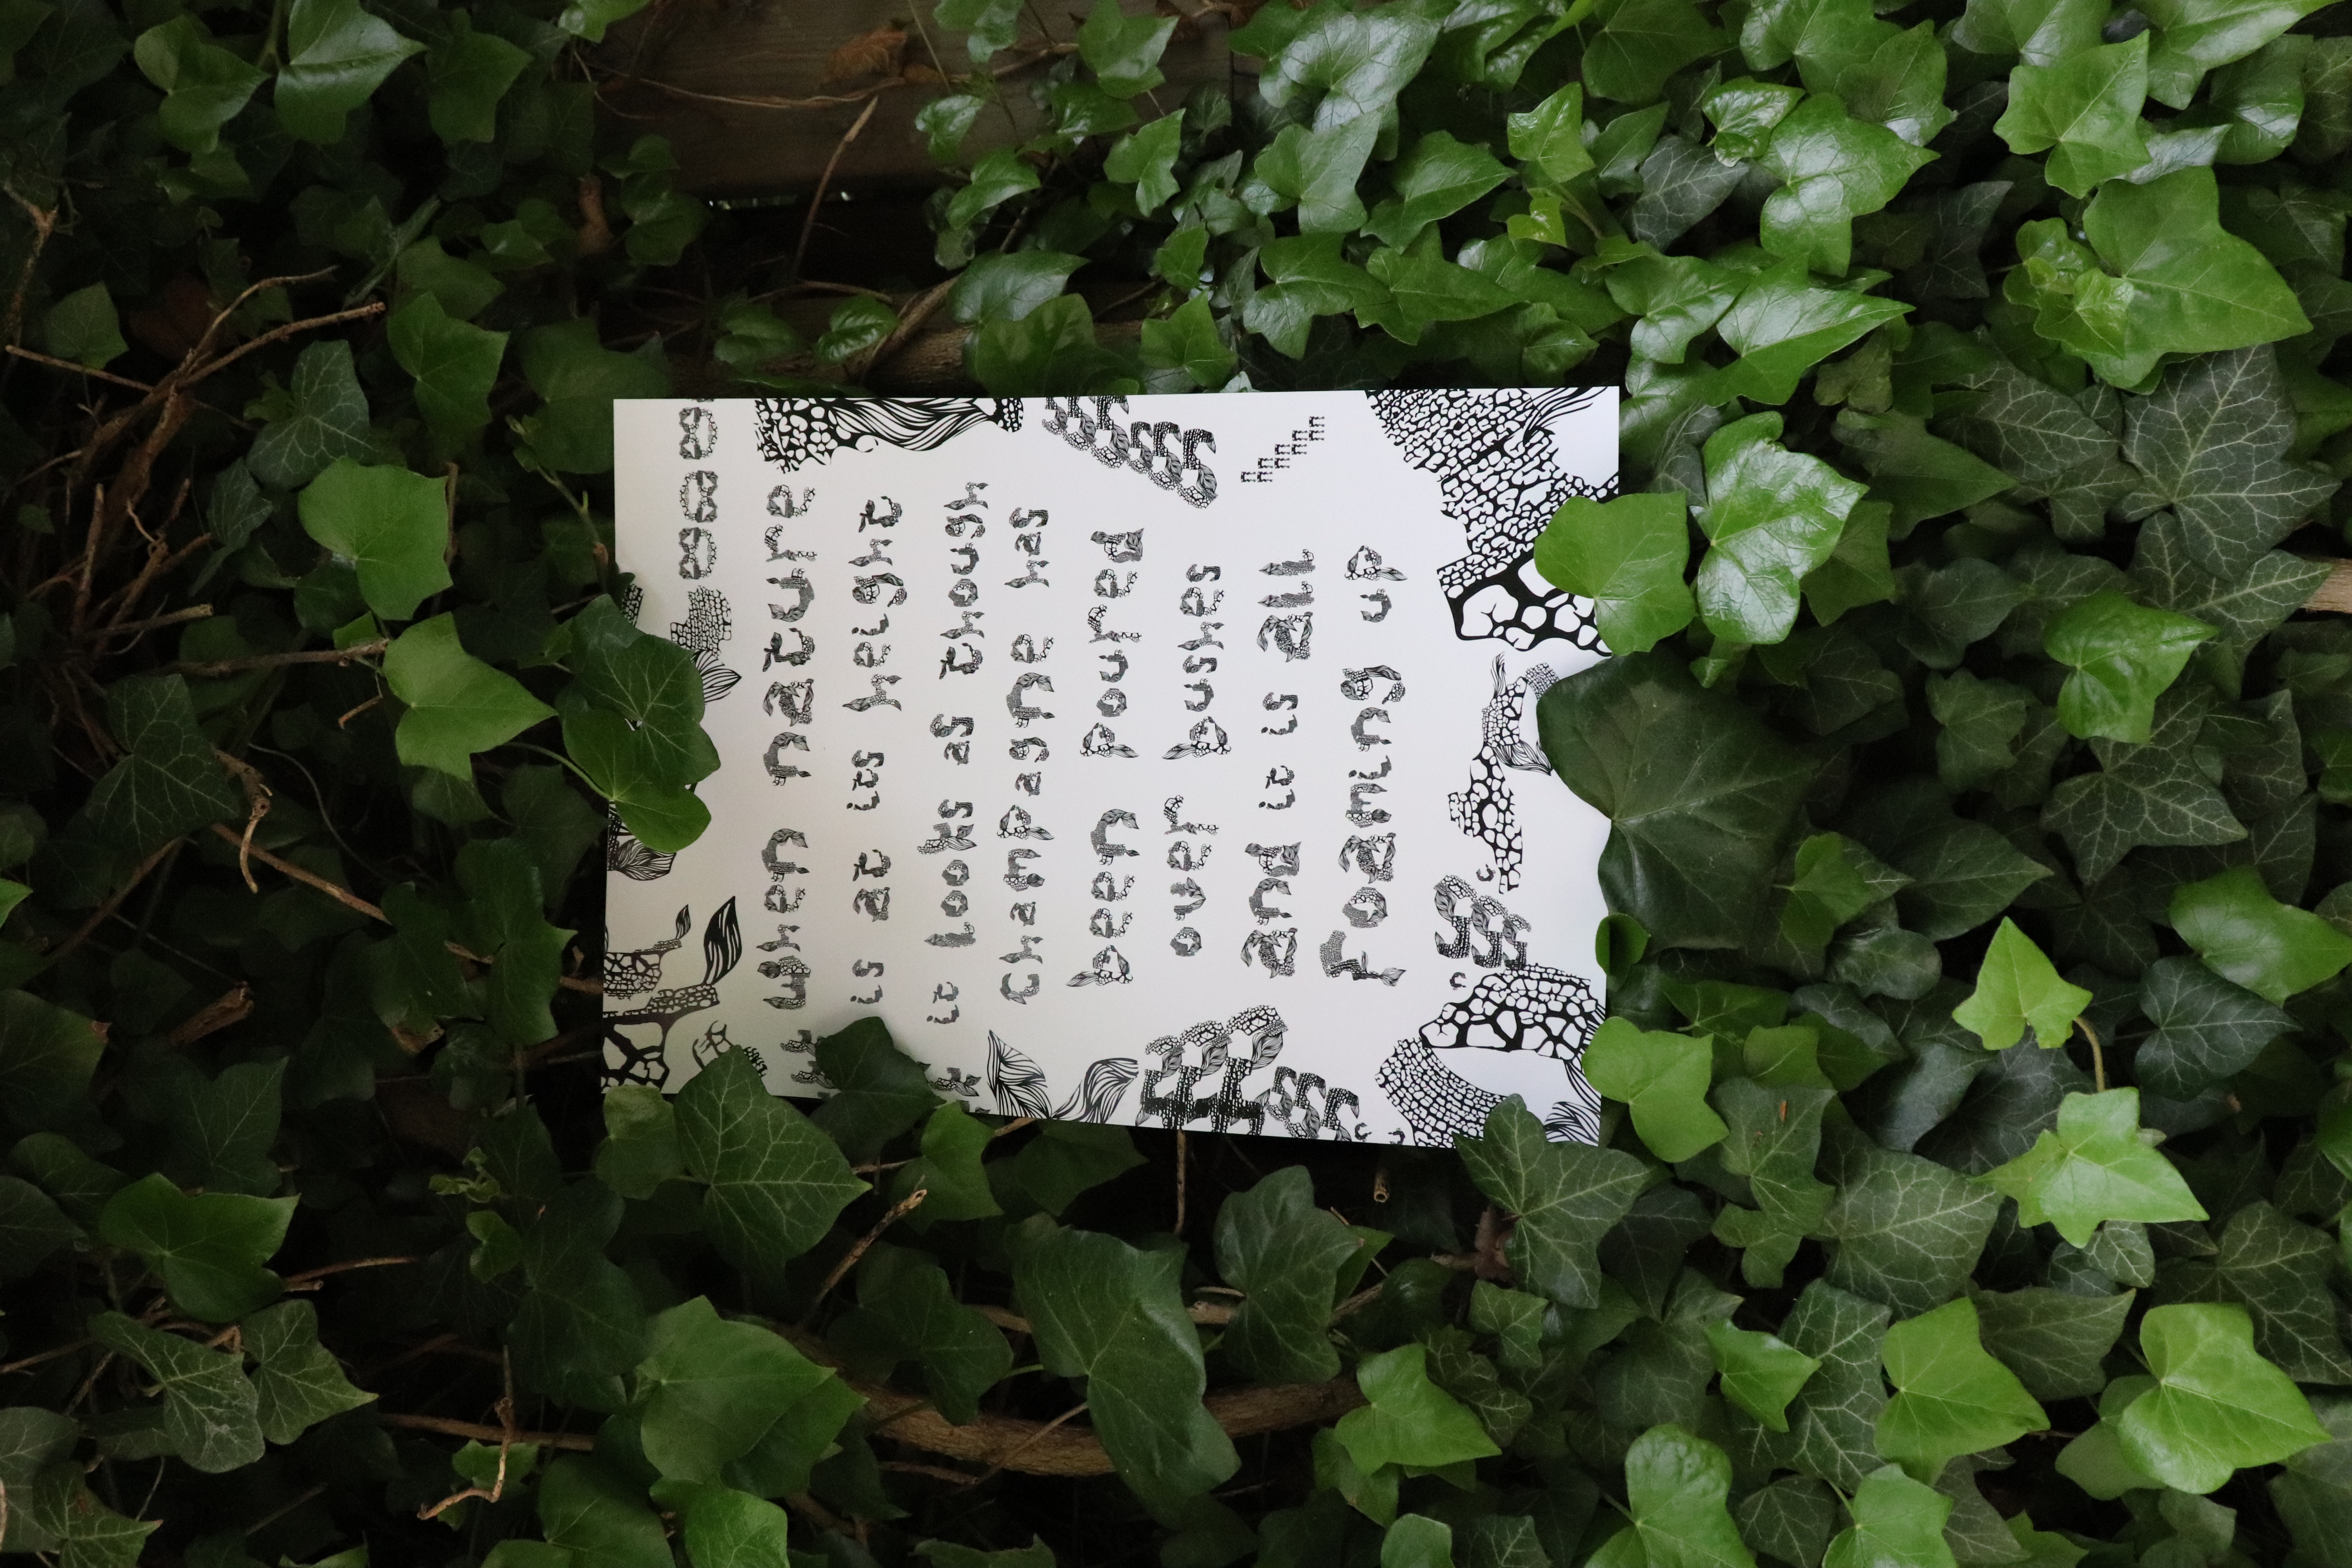 when nature
is at its height
it looks as though
Champagne has
been poured
over bushes
and it is all
foaming up